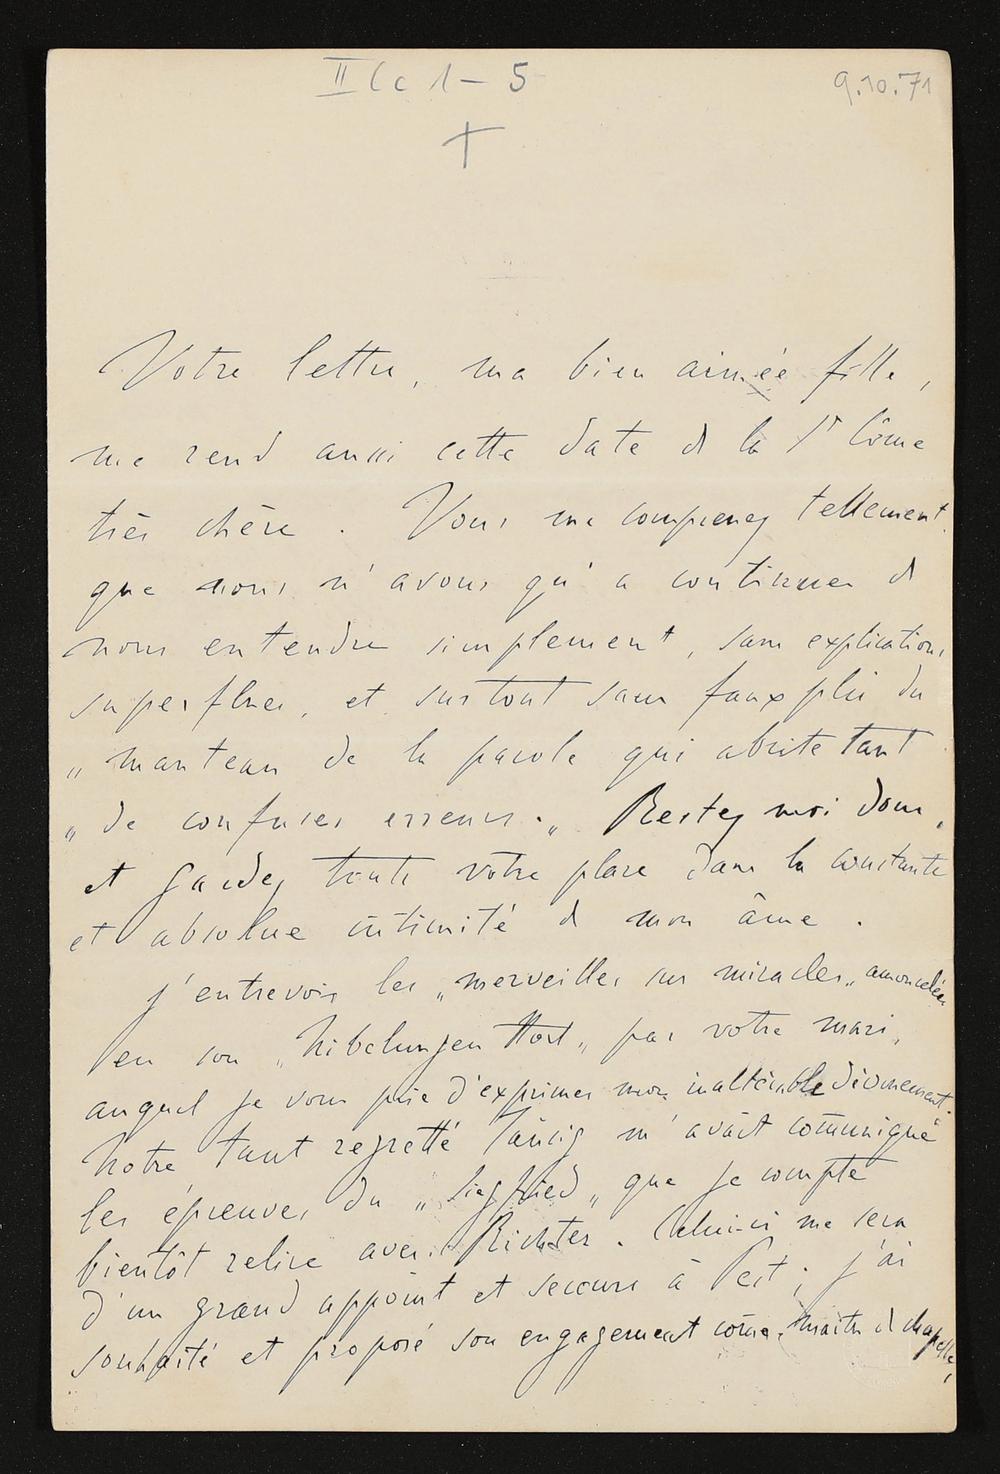 II Cc 1 – 5
9.10.71
Votre lettre, ma bien aimée fille,
me rend aussi cette date de la St Côme
très chère. Vous me comprenez tellement
que nous n'avons qu'a continuer de
nous entendre simplement, sans explications
superflues, et surtout sans faux plis du
„manteau de la parole qui abrite tant
„de confuses erreurs.„ Restez moi donc,
et gardez toute votre place dans la constante
et absolue intimité de mon âme.
J'entrevois les „merveilles sur miracles„ amoncelées
en son „Nibelungen Hort„ par votre mari,
auquel je vous prie d'exprimer mon inaltérable dévouement.
Notre tant regretté Tausig m'avait com̄uniqué
les épreuves du „Siegfried„ que je compte
bientôt relire avec Richter. Celui-ci me sera
d'un grand appoint et secours à Pest; j'ai
souhaité et proposé son engagement com̄e maitre de chapelle,